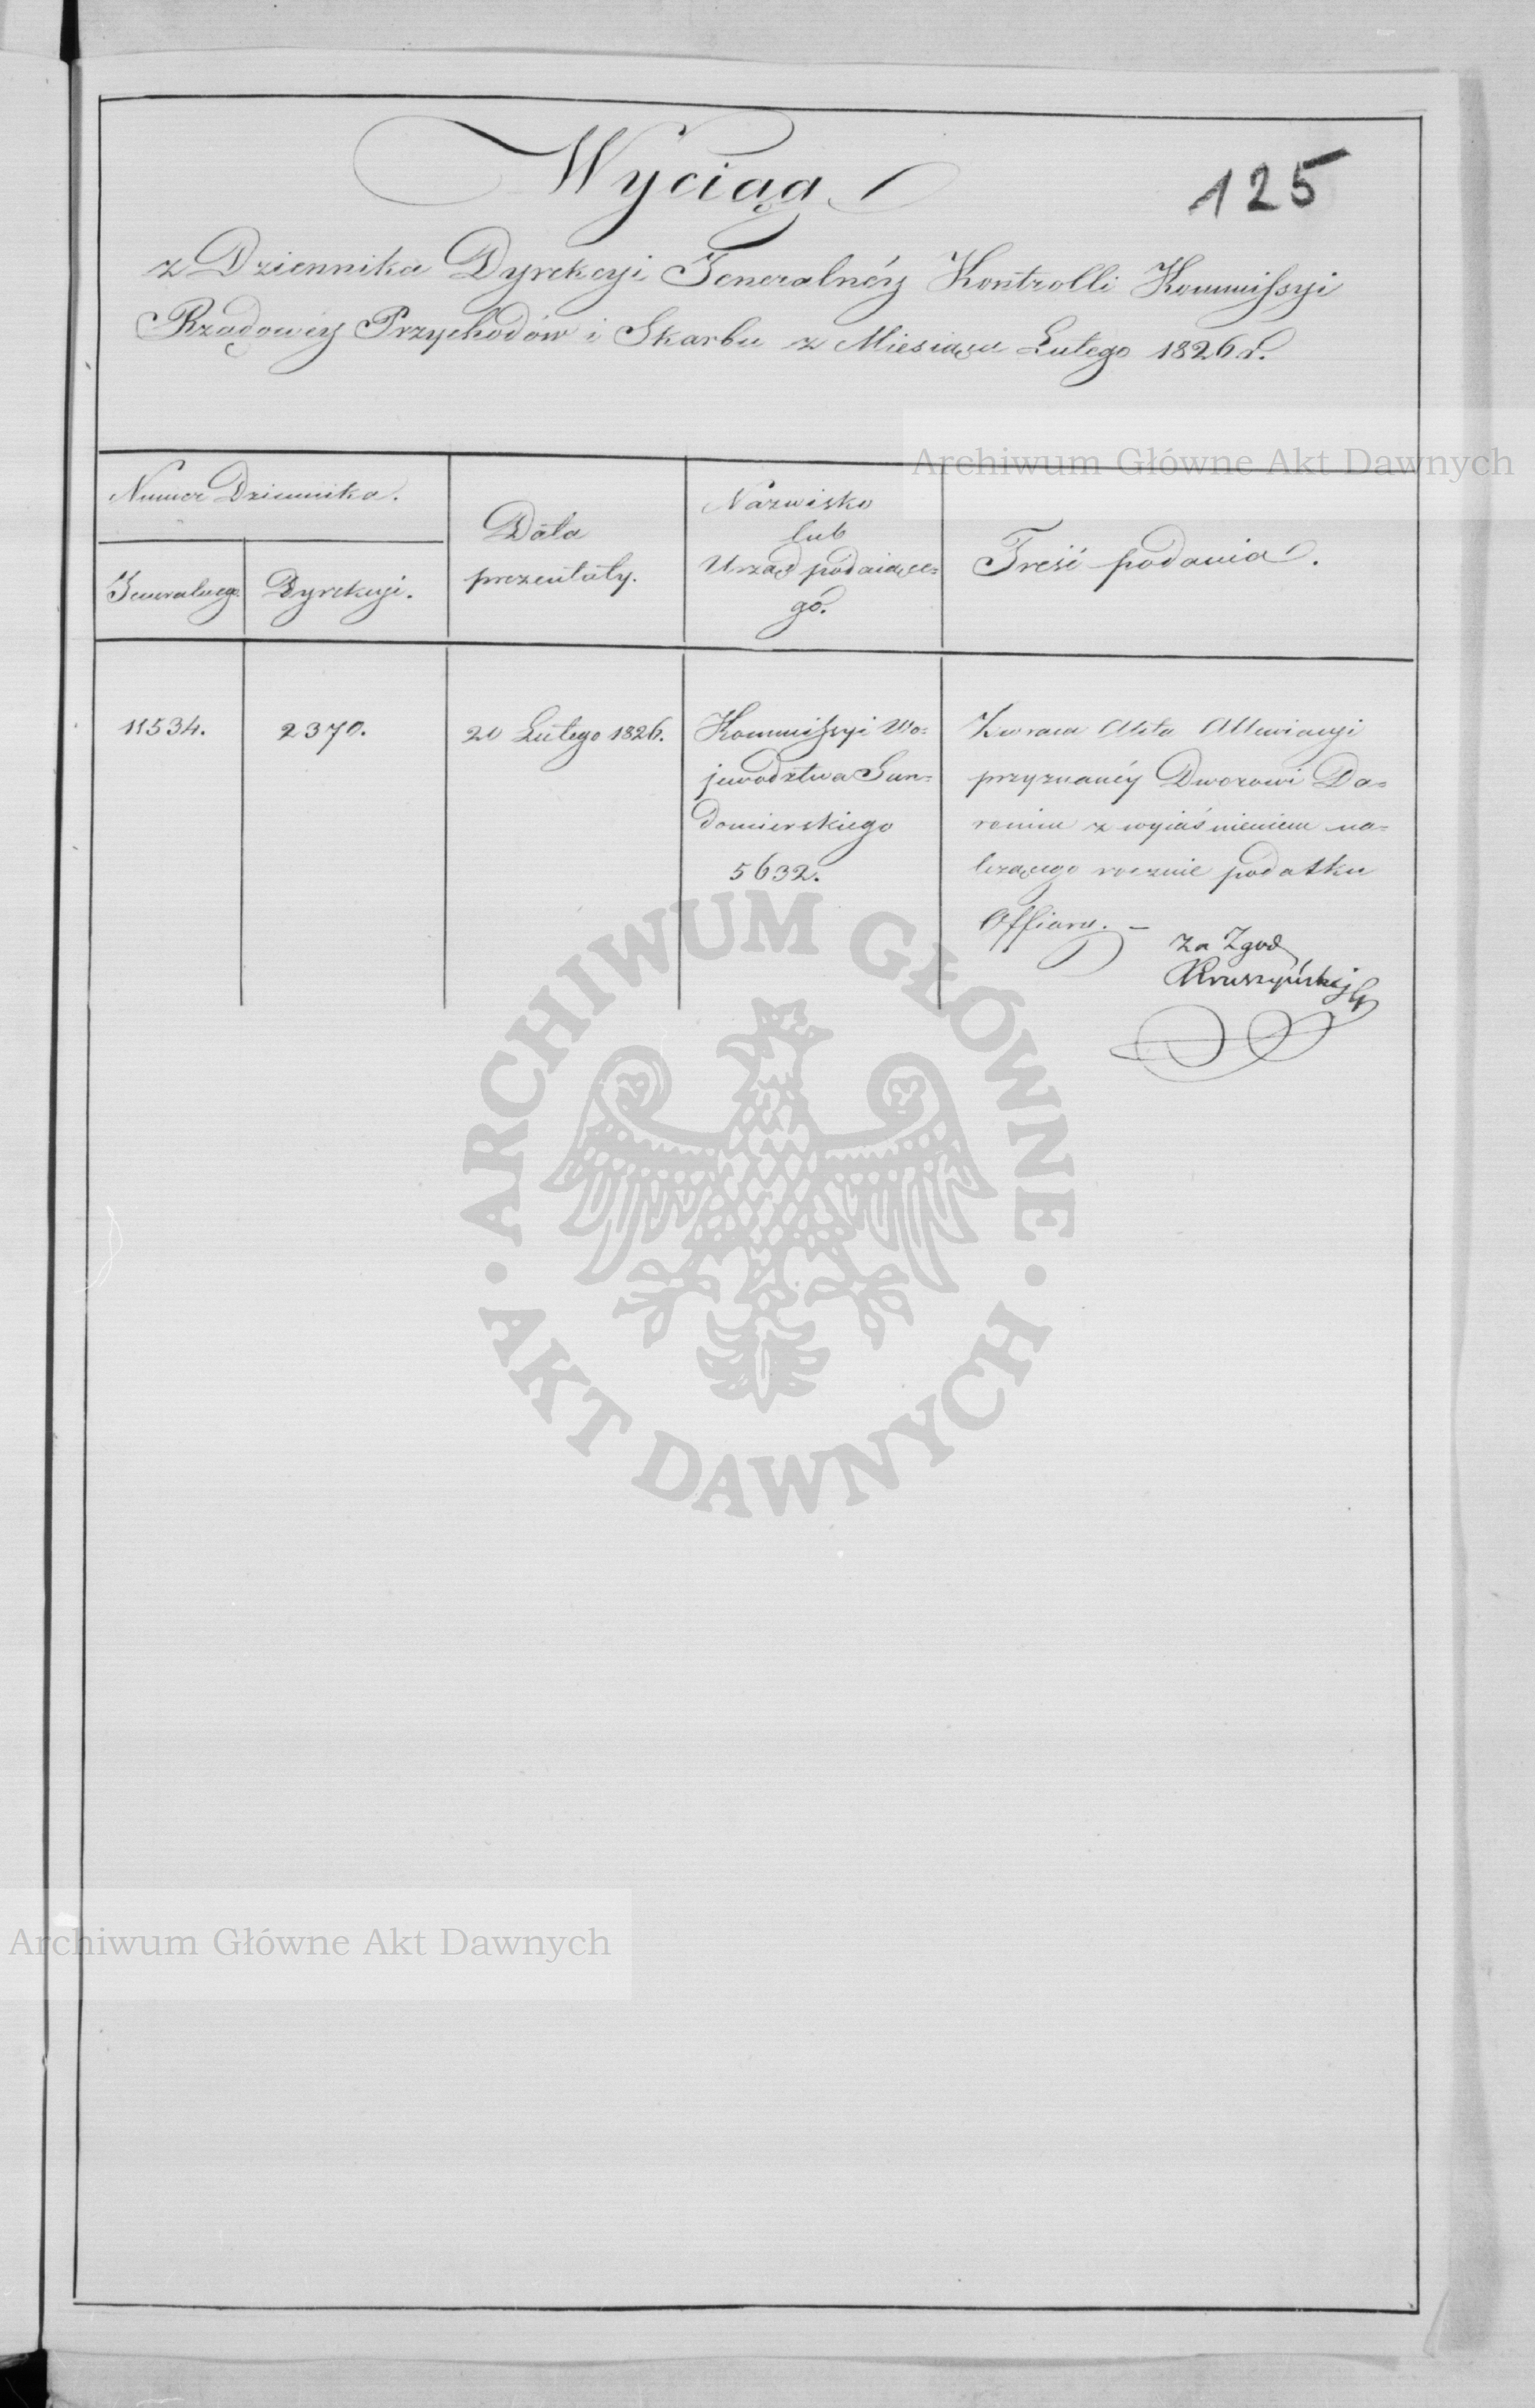 Wyciąg
125
z Dziennika Dyrekcyi Jeneralnéy Kontrolli Kommissyi
Rządowéy Przychodów i Skarbu z Miesiąca Lutego 1826 r.
Archiwum Główne Akt Dawnych
Numer Dziennika.
Jeneralnego
Dyrekcyi.
Data
prezentaty.
Nazwisko
lub
Urząd podaiące=
go.
Treść podania.
11534.
2370.
20 Lutego 1826.
Kommissyi Wo=
jewodztwa San=
domierskiego
5632.
Zwraca Akta Allewiacyi
przyznanéy Dworowi Da=
romin z wyiaśnieniem na=
leżącego rocznie podatku
Offiary. —
Za Zgod
Kruszyński
ARCHIWUM GŁÓWNE · AKT DAWNYCH ·
Archiwum Główne Akt Dawnych